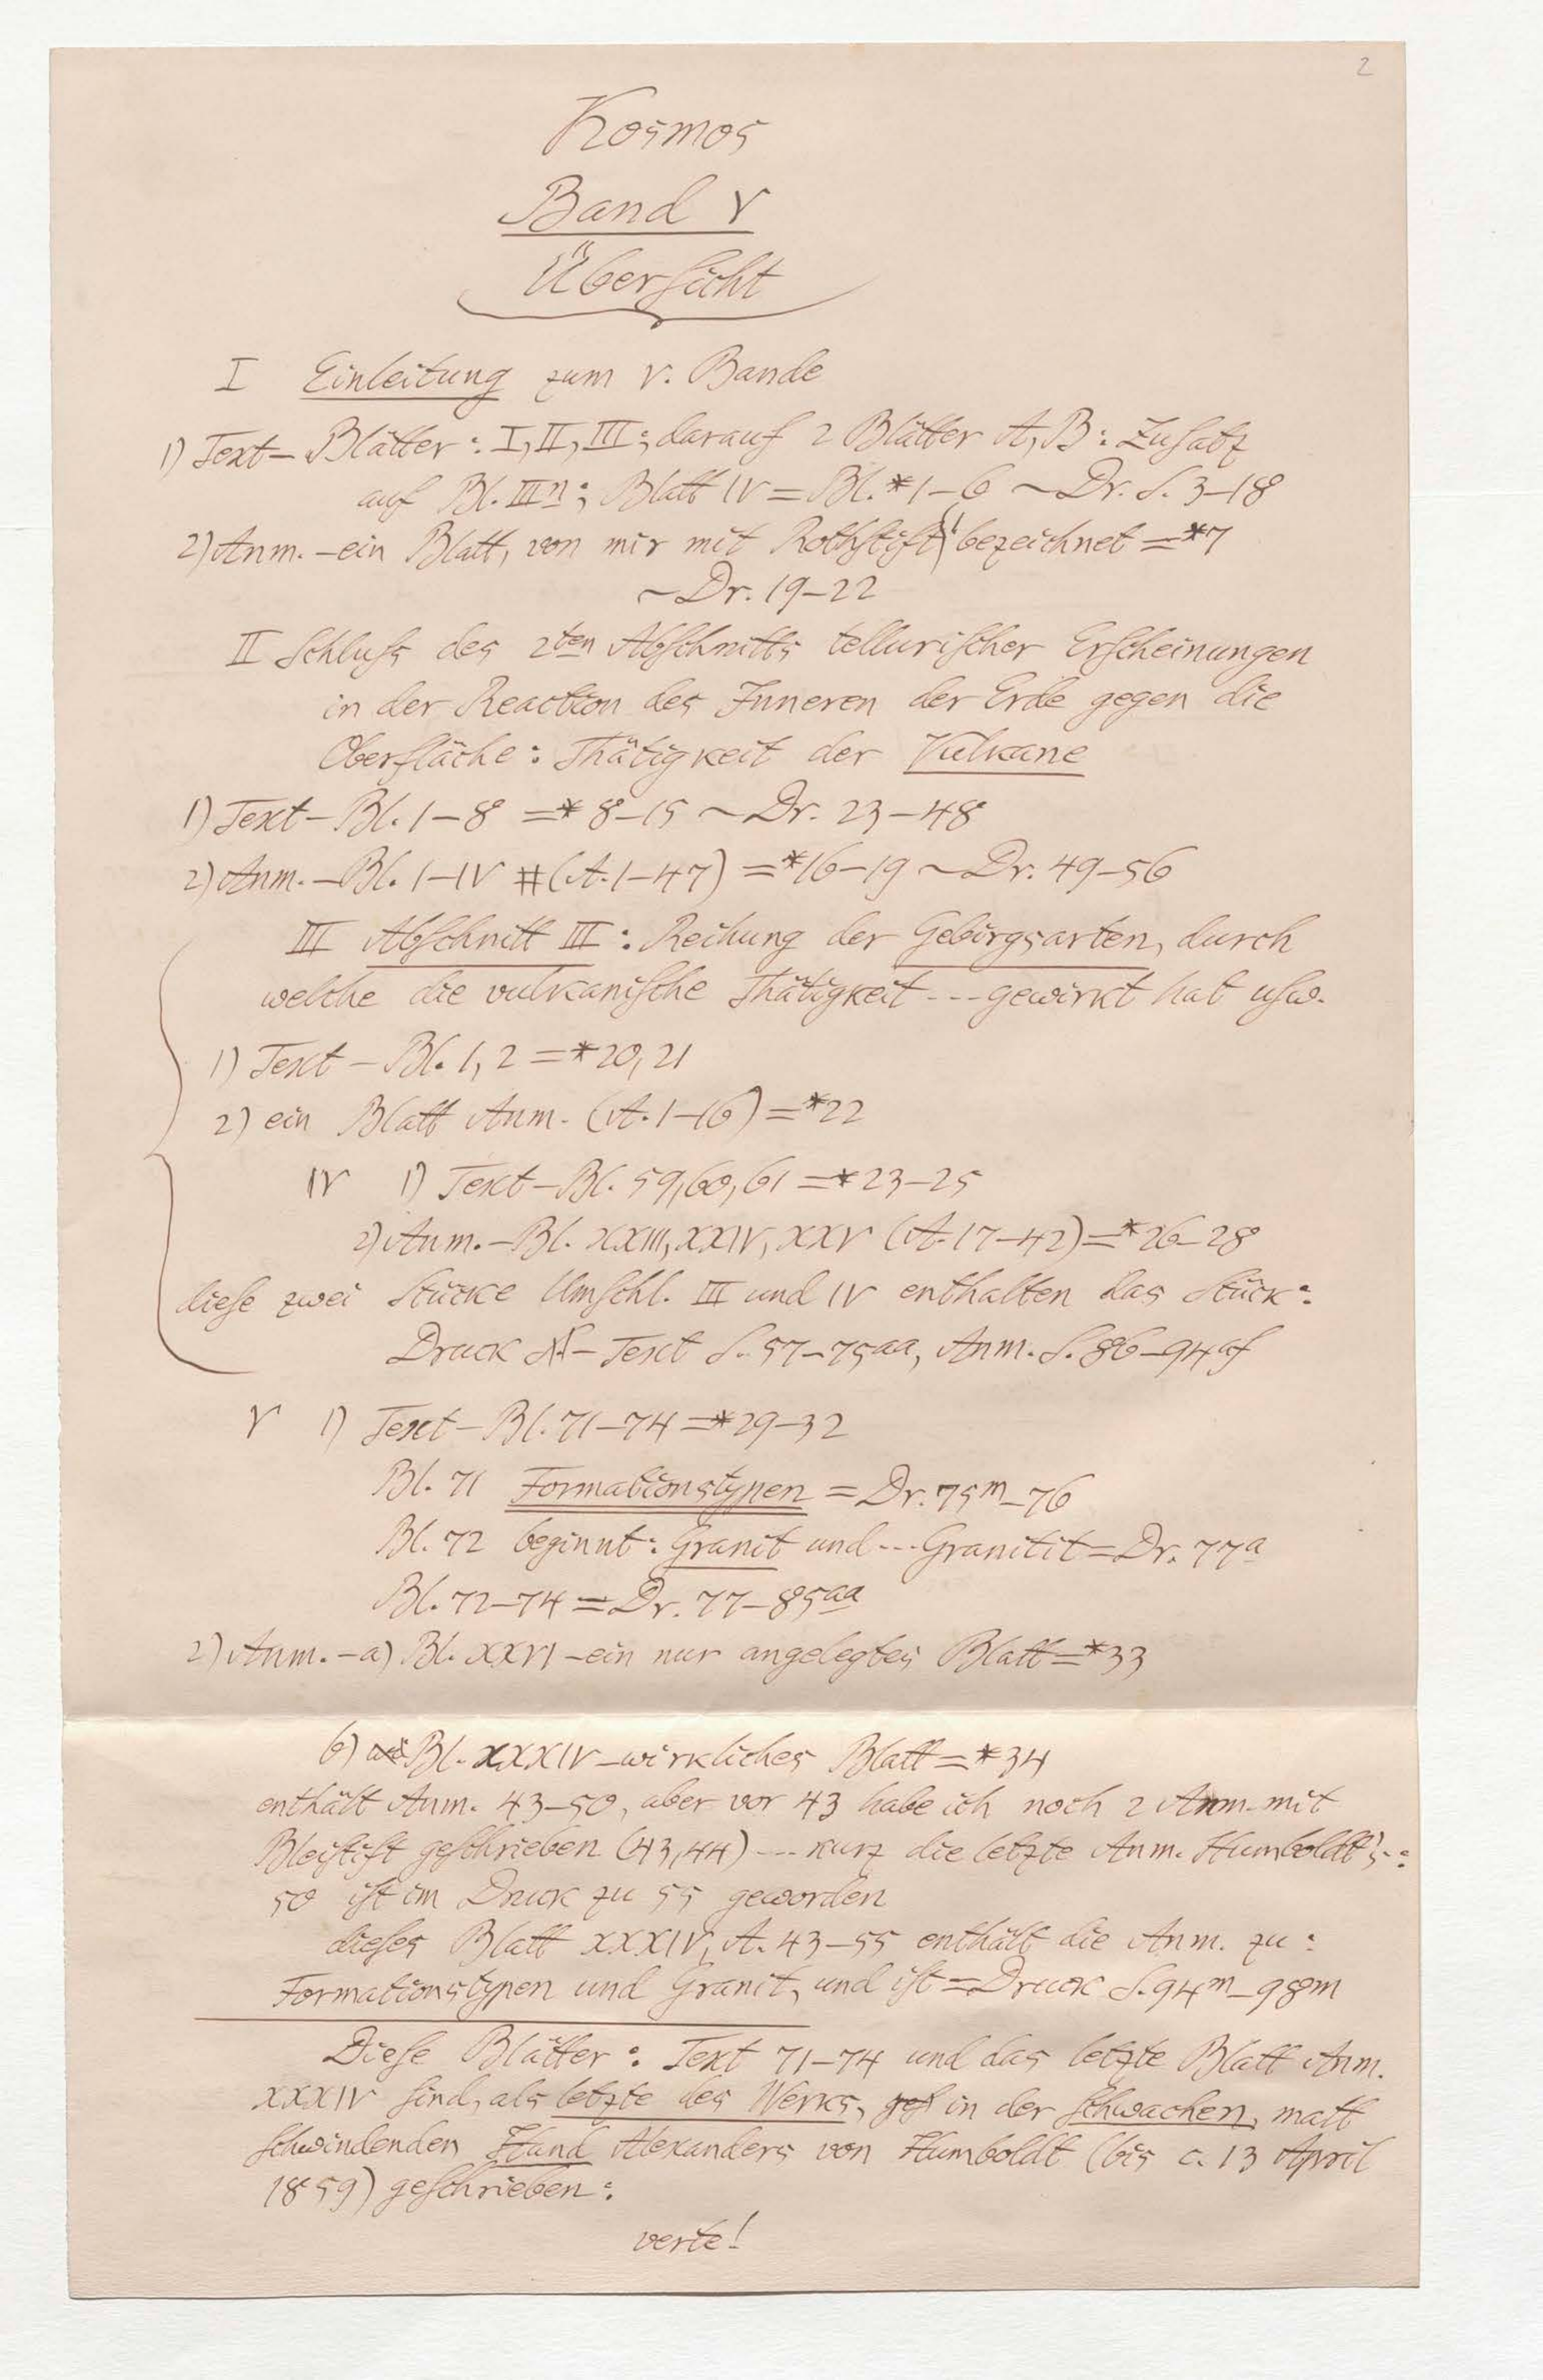 2
Kosmos
Band V
Überſicht
I Einleitung zum V. Bande
1) Text – Blätter: I, II, III; darauf 2 Blätter A, B: Zuſatz
auf Bl. IIIn; Blatt IV = Bl. *1–6 ~ Dr. S. 3–18
2) Anm. – ein Blatt, von mir mit Rothſtift bezeichnet = *7
~ Dr. 19–22
II Schluſs des 2ten Abſchnitts telluriſcher Erſcheinungen
in der Reaction des Inneren der Erde gegen die
Oberfläche: Thätigkeit der Vulkane
1) Text – Bl. 1–8 = *8–15 ~ Dr. 23–48
2) Anm. – Bl. I–IV (A. 1–47) = *16–19 ~ Dr. 49–56
III Abſchnitt III: Reihung der Gebirgsarten, durch
welche die vulkaniſche Thätigkeit --- gewirkt hat uſw.
1) Text – Bl. 1, 2 = *20, 21
2) ein Blatt Anm. (A. 1–16) = *22
IV 1) Text – Bl. 59, 60, 61 = *23–25
2) Anm. – Bl. XXIII, XXIV, XXV (A. 17–42) = *26–28
dieſe zwei Stücke Umſchl. III und IV enthalten das Stück:
Druck – Text S. 57–75aa, Anm. S. 86–94af
V 1) Text – Bl. 71–74 = *29–32
Bl. 71 Formationstypen = Dr. 75m–76
Bl. 72 beginnt: Granit und --- Granitit = Dr. 77a
Bl. 72–74 = Dr. 77–85aa
2) Anm. – a) Bl. XXVI – ein nur angelegtes Blatt = *33
b) Bl. XXXIV – wirkliches Blatt = *34
enthält Anm. 43–50, aber vor 43 habe ich noch 2 Anm. mit
Bleiſtift geſchrieben (43, 44) --- kurz die letzte Anm. Humboldt's:
50 iſt im Druck zu 55 geworden
dieſes Blatt XXXIV, A. 43–55 enthält die Anm. zu:
Formationstypen und Granit, und iſt = Druck S. 94m–98m
Dieſe Blätter: Text 71–74 und das letzte Blatt Anm.
XXXIV ſind, als letzte des Werks, in der ſchwachen, matt
ſchwindenden Hand Alexanders von Humboldt (bis c. 13 April
1859) geſchrieben:
verte!